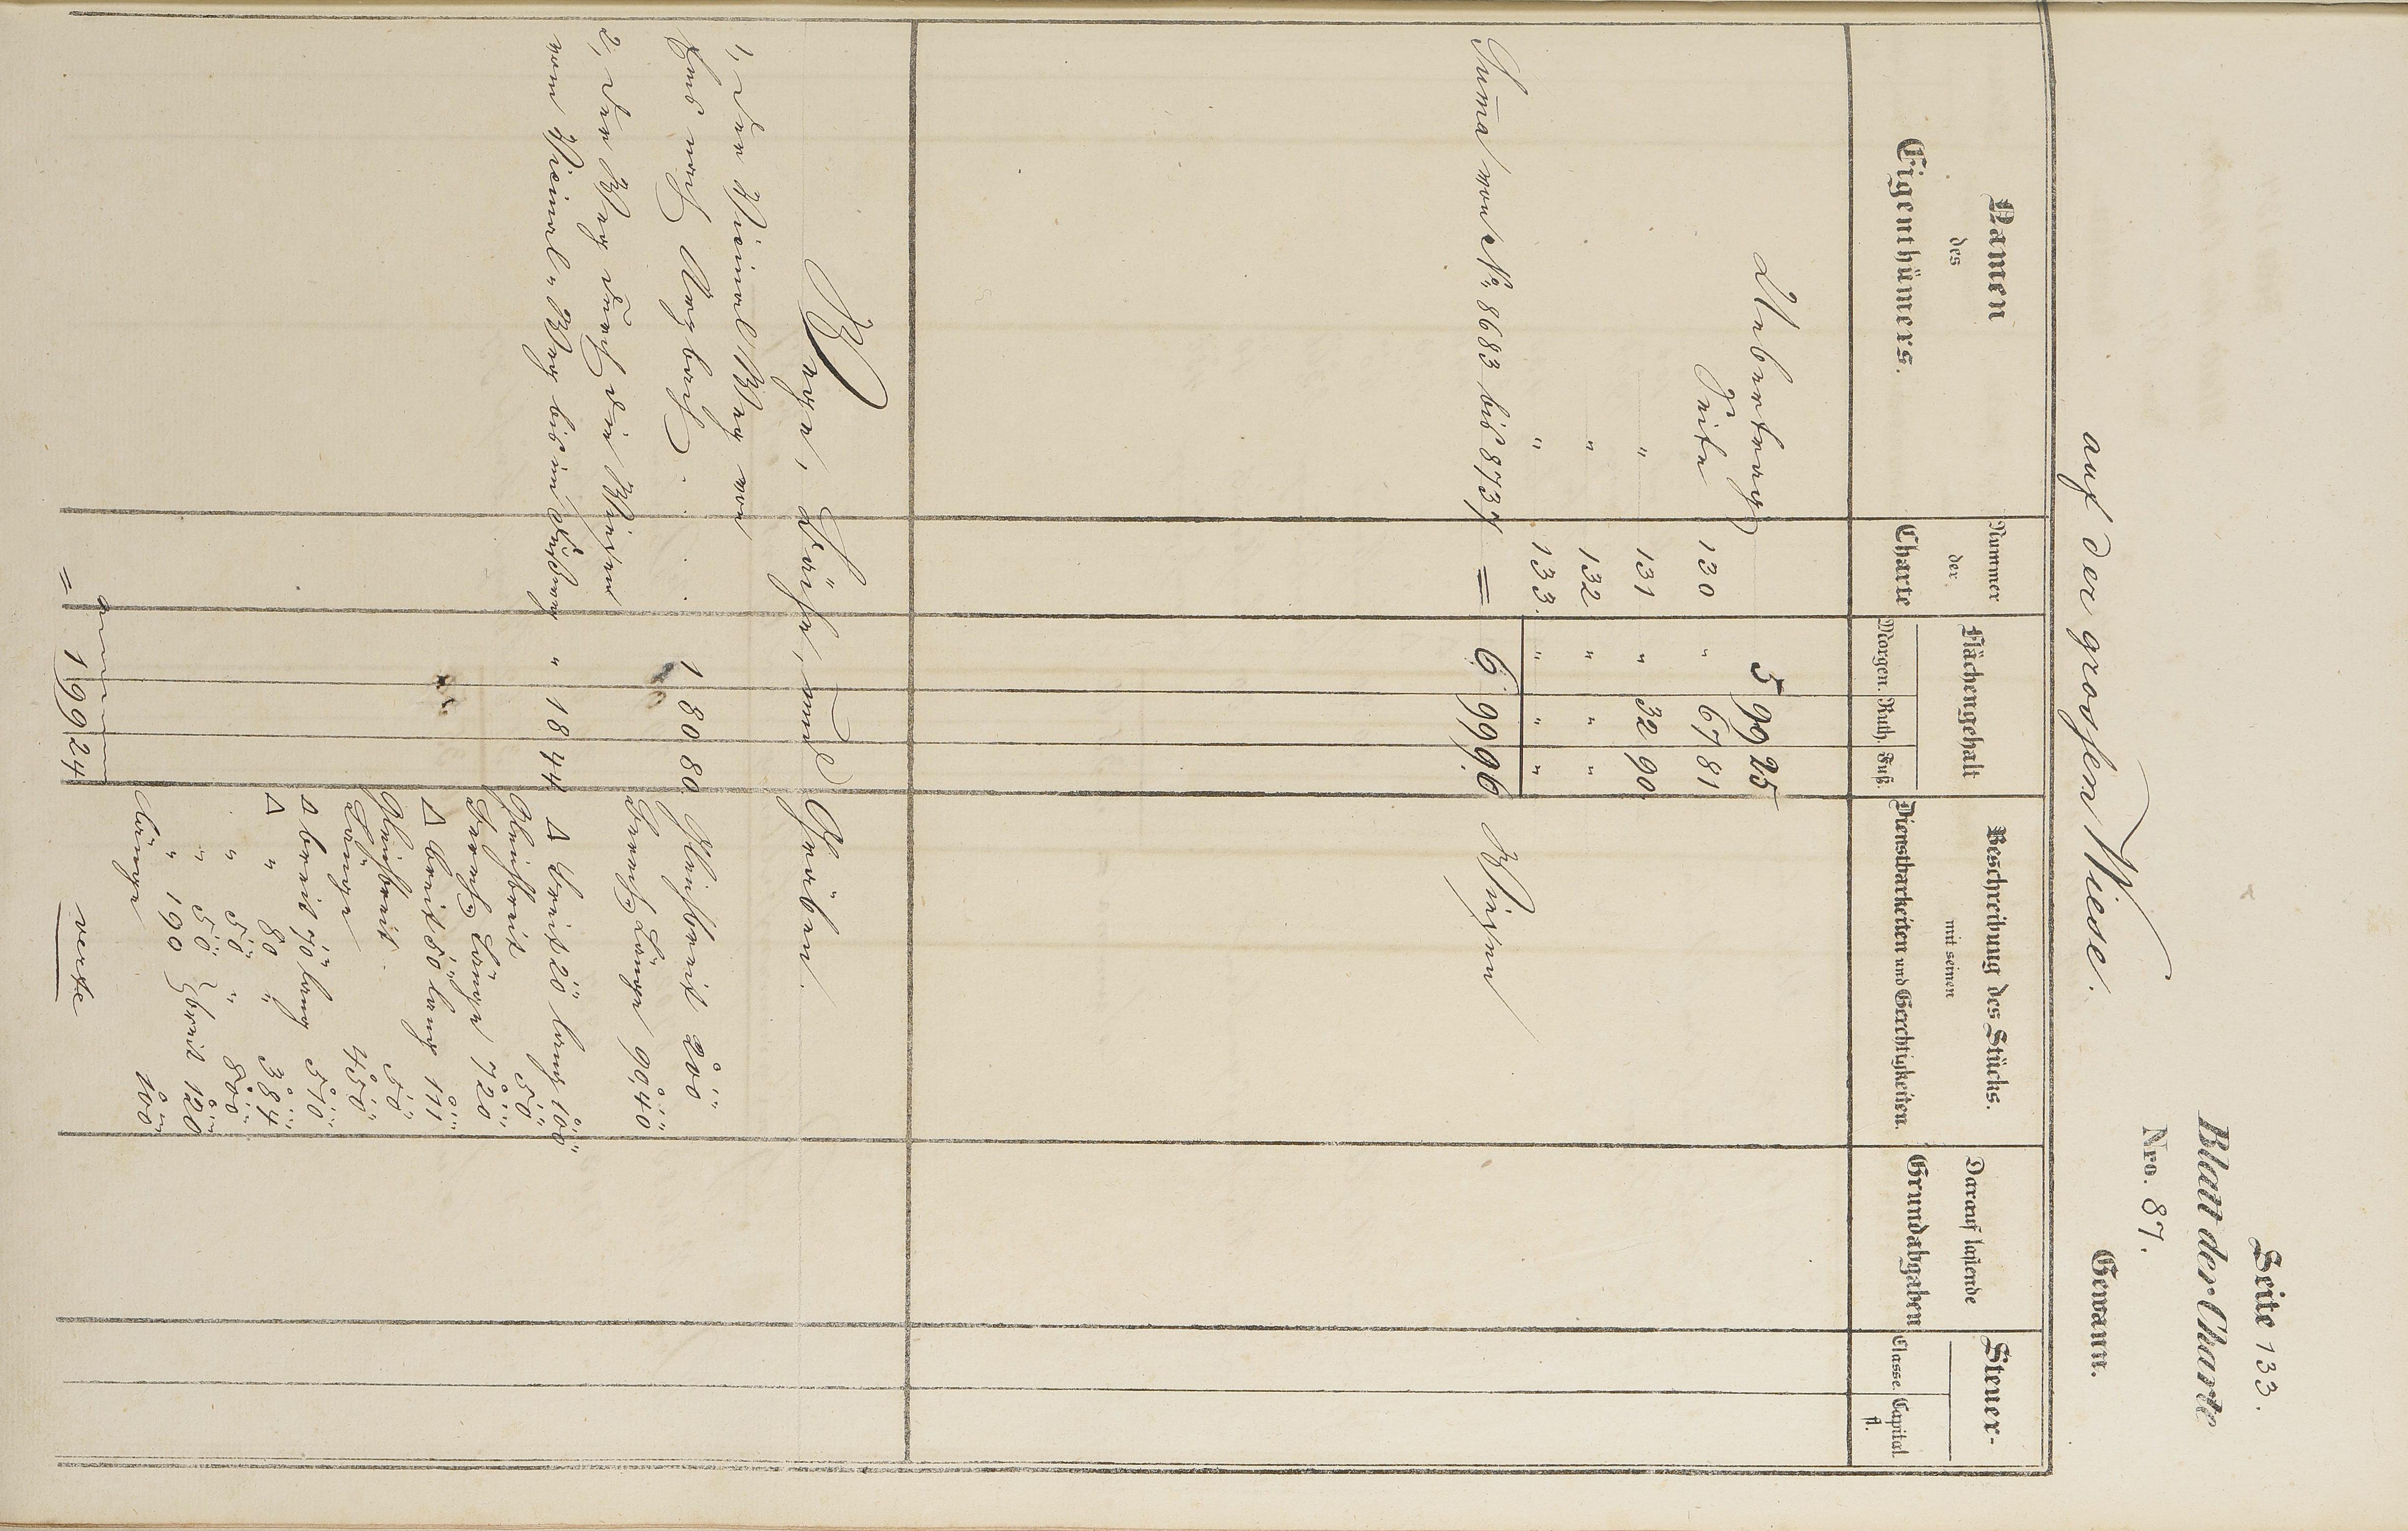 Seite 133.
Blatt der Charte
Nro. 87.
auf der grossen Wiese. Gewann.
Namen
des
Eigenthümers.
Nummer
der
Charte
Flächengehalt
Morgen. Ruth. Fuß.
Beschreibung des Stücks.
mit seinen
Dienstbarkeiten und Gerechtigkeiten.
Darauf haftende
Grundabgaben
Steuer-
Classe. Capital
fl.
Uebertrag 5 99 25
Seite 130 " 67 81
" 131 " 32 90
" 132 " " "
" 133. " " "
Suma von No. 8683 bis 8737 = 6. 99 96 Wiesen
Wege, Bäche, und Gräben.
1, der Vicinal Weg von
nach 1 80 80
Gleichbreit 200
Länge 90,40
2, der Weg durch die Wiesen
vom Vicinal-Weg bis " 18 44
Δ breit 20 lang 100
Gleichbreit 50
Länge 720
Δ breit 50 lang 111
Gleichbreit 50
Länge 450
Δ breit 70 lang 570
Δ " 80 " 384
" 50 " 800
" 50
" 190 } breit 120
Länge 100
= 1 99 24
verte